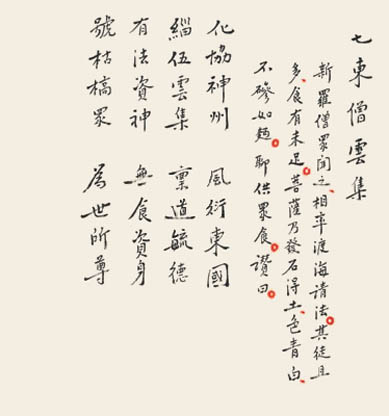 七東僧雲集
新羅僧眾聞之相率渡海請法其徒且
多食有未足菩薩乃發石得土色青白
不磣如麵聊供眾食讚曰
化協神州 風衍東國
緇伍雲集 稟道毓德
有法資神 無食資身
號枯槁眾 為世所尊